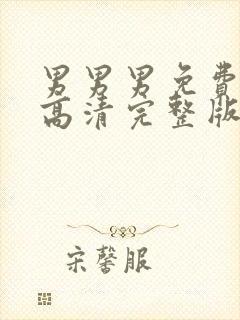 男男男免费
高清完整版
宋馨服